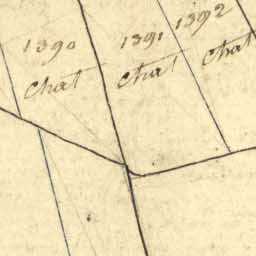 1390
Chat
1391
Chat
1392
Chat